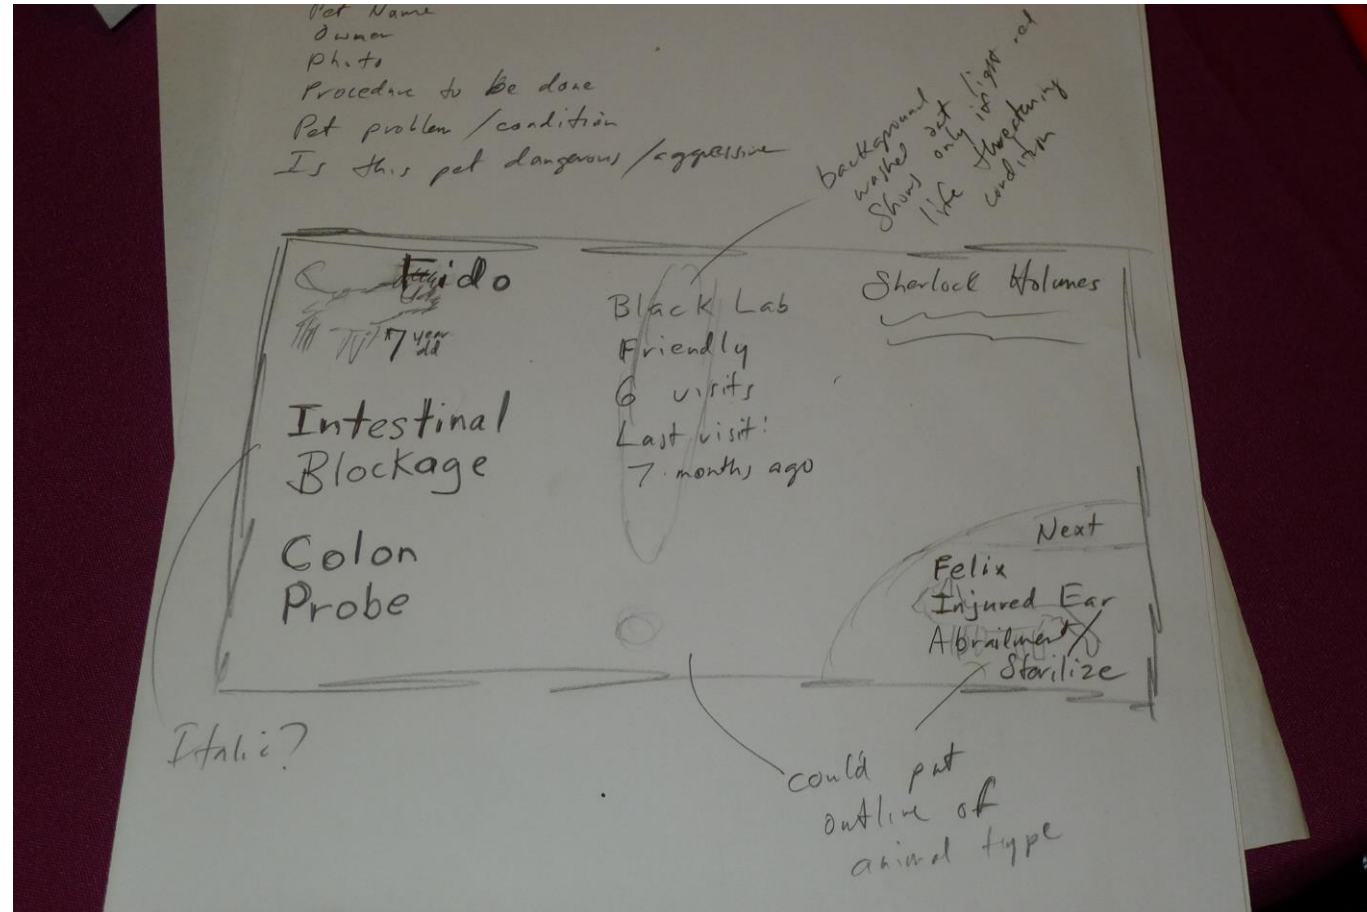 Pet Name
Owner
Photo
Procedure to be done
Pet problem / condition
Is this pet dangerous / aggressive
background
washed out light red
Shows only if
life threatening
condition
Fido
7 year
old
Black Lab
Friendly
6 visits
Last visit:
7 months ago
Sherlock Holumes
Intestinal
Blockage
Colon
Probe
Next
Felix
Injured Ear
Abrailment /
Starilize
Italic?
could put
outline of
animal type